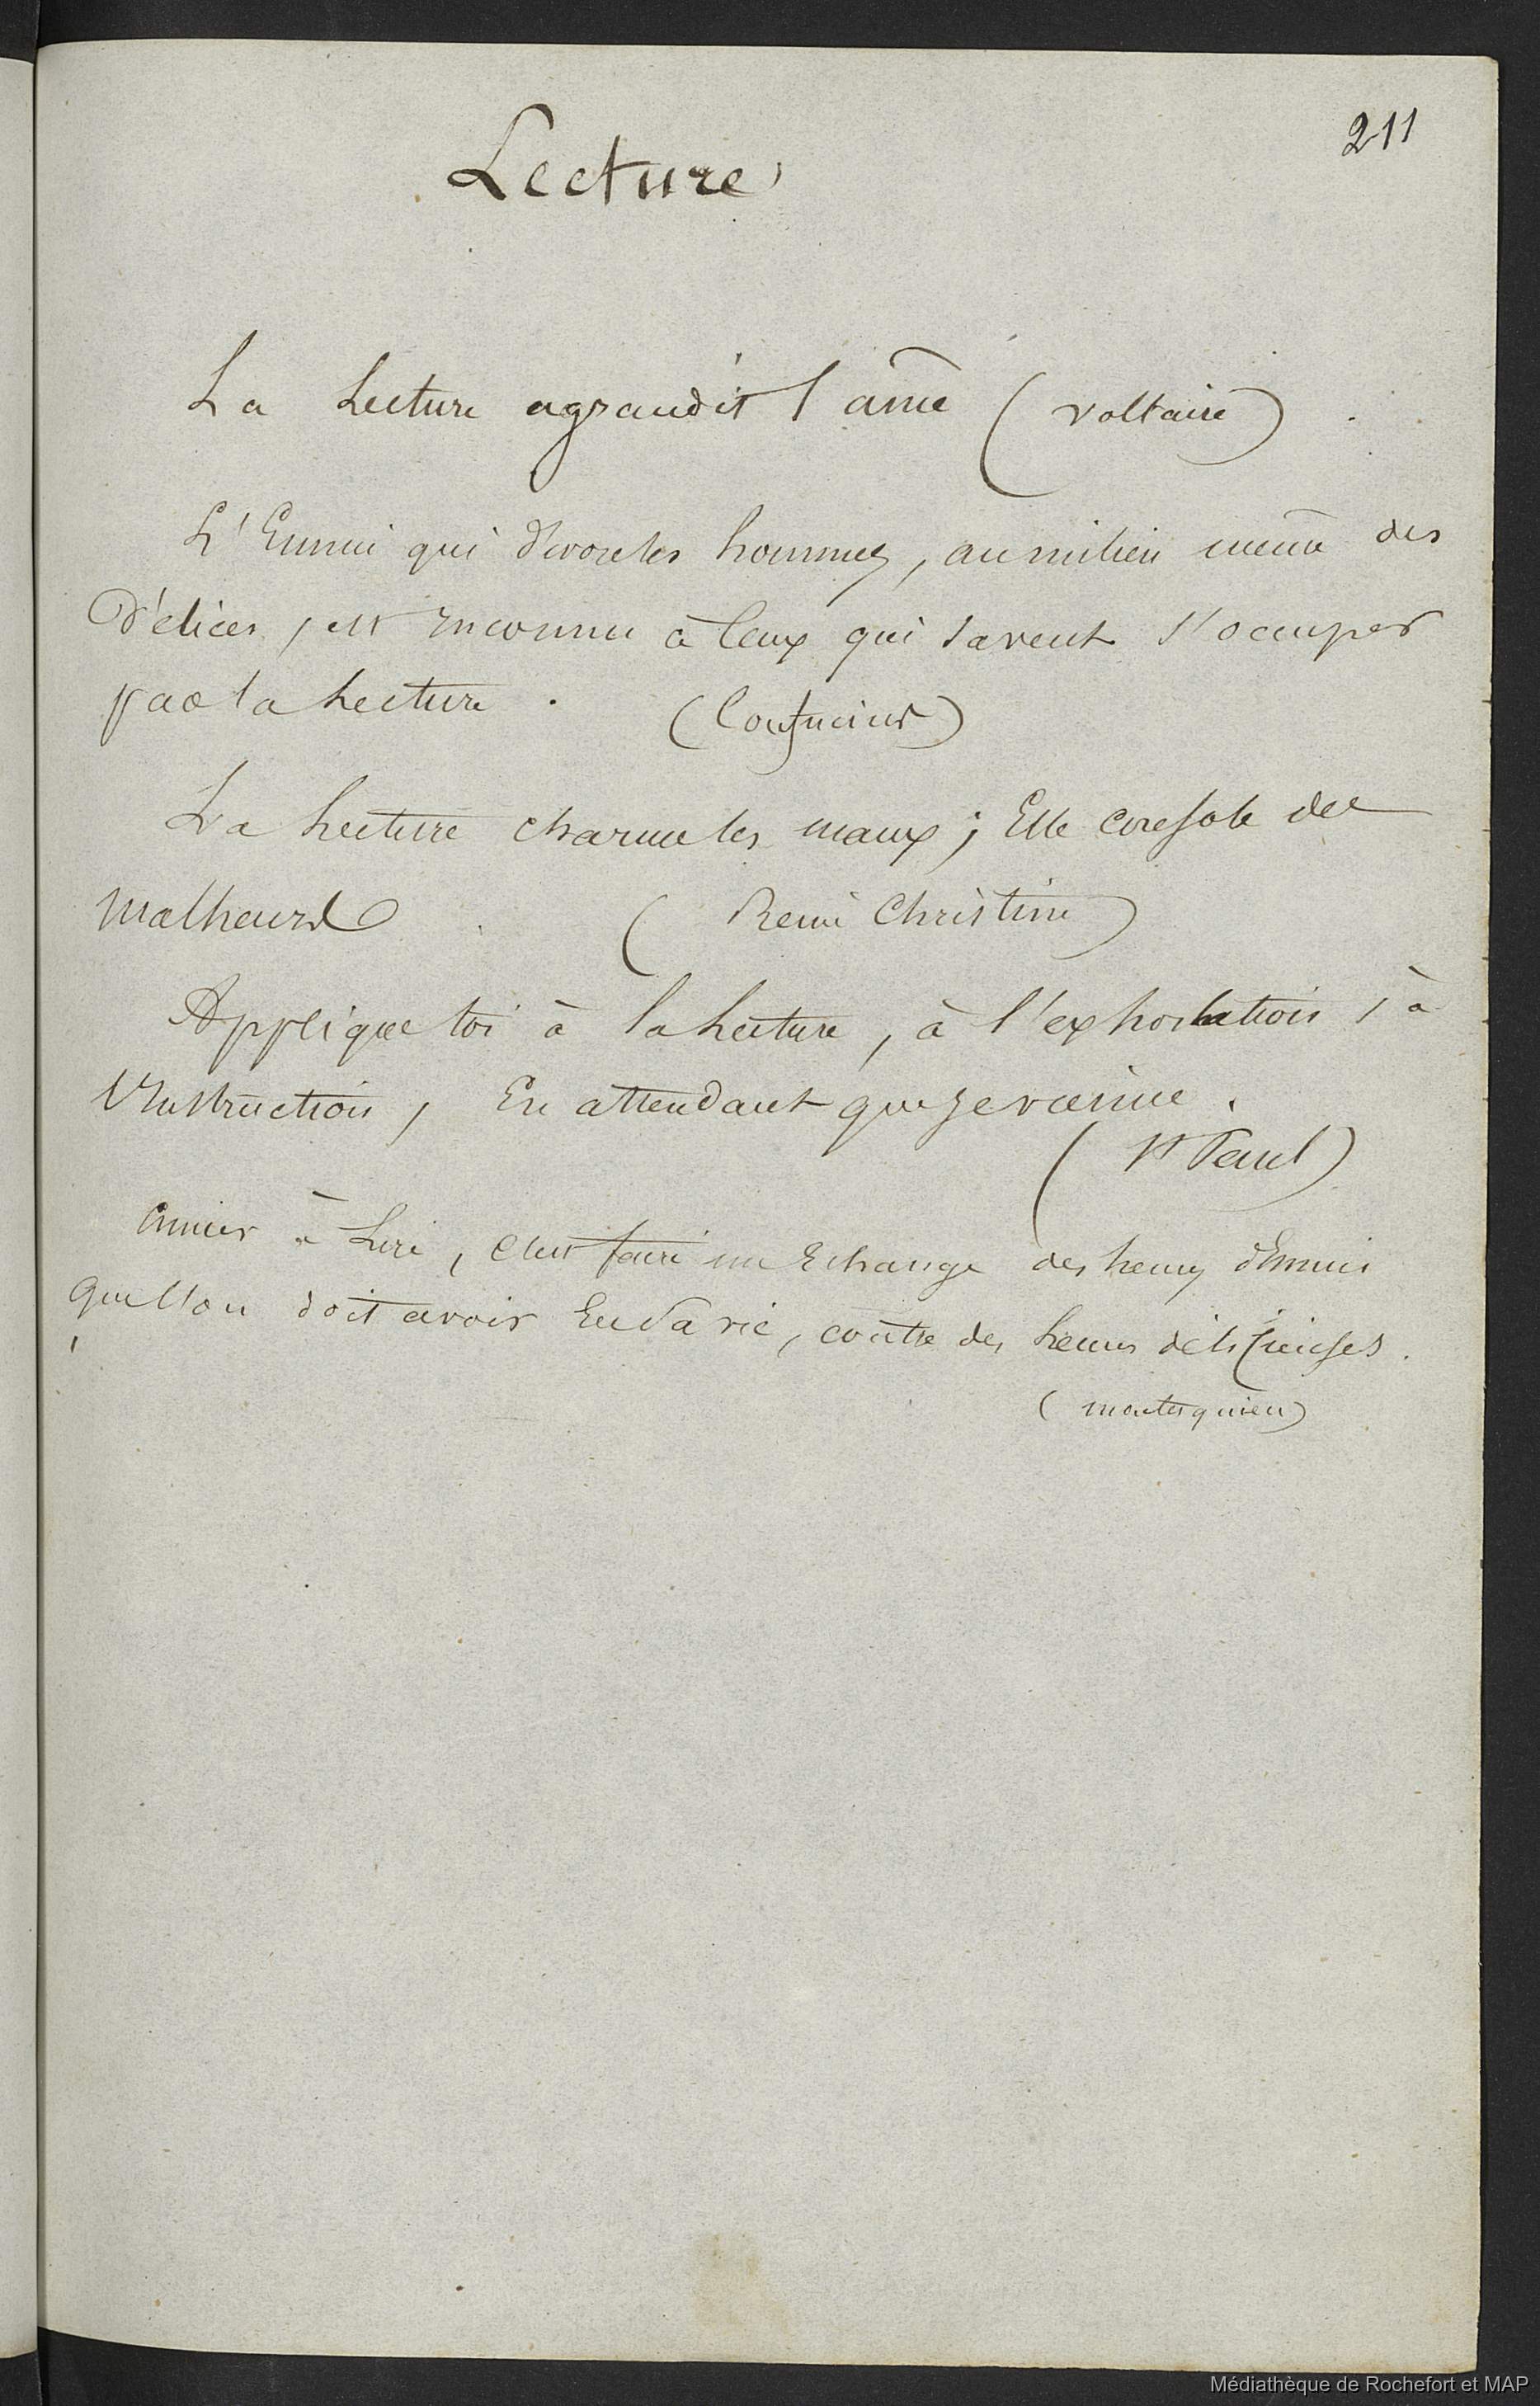 211
Lecture
La Lecture agrandit l'ame (voltaire)
L'Ennui qui dévore les hommes, au milieu meme des
Délices, est Inconnu à Ceux qui savent s'occuper
par la Lecture. (Confucius)
La Lecture charme les maux; Elle console des
malheurs (Remi Christine)
Applique toi à la Lecture, à l'exhortation, à
l'Instruction, En attendant que je vienne.
(St Paul)
aimer à Lire, c'est faire un Echange des heures d'Ennuis
que l'on doit avoir En Sa vie, contre des heures délicieuses.
(montesquieu)
Médiathèque de Rochefort et MAP